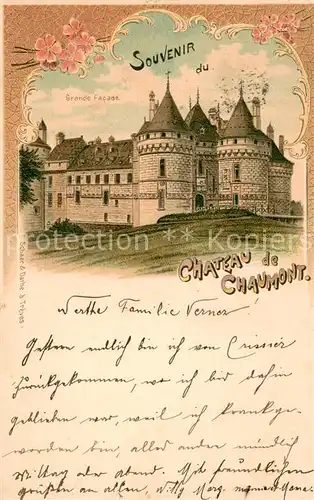 Souvenir
du
Grande Façade.
Château de
Chaumont.
Schaar & Dathe à Trèves.
Werthe Familie Verner!
Gestern endlich bin ich von Crissier
zurückgekommen, wo ich bis dahin
geblieben war, weil ich krankge-
worden bin, alles andre mündlich
Mittag oder abend. Mit freundlichen
grüßen an allen,